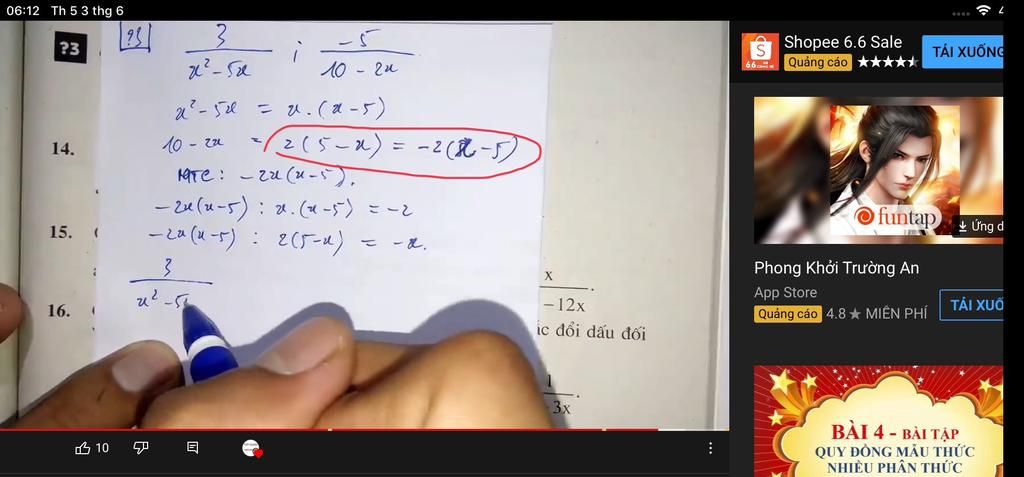 06:12 Th 5 3 thg 6
?3
?3
3 / x² - 5x ; -5 / 10 - 2x
x² - 5x = x.(x-5)
10 - 2x = 2(5-x) = -2(x-5)
14.
MTC: -2x(x-5).
-2x(x-5) : x.(x-5) = -2
15.
-2x(x-5) : 2(5-x) = -x.
3 / x² - 5x
16.
x / -12x.
ic đổi dấu đối
1 / 3x.
10
Shopee 6.6 Sale
Quảng cáo ★★★★★
TẢI XUỐNG
funtap
Ứng d
Phong Khởi Trường An
App Store
Quảng cáo 4.8 ★ MIỄN PHÍ
TẢI XUỐ
BÀI 4 - BÀI TẬP
QUY ĐỒNG MẪU THỨC
NHIỀU PHÂN THỨC